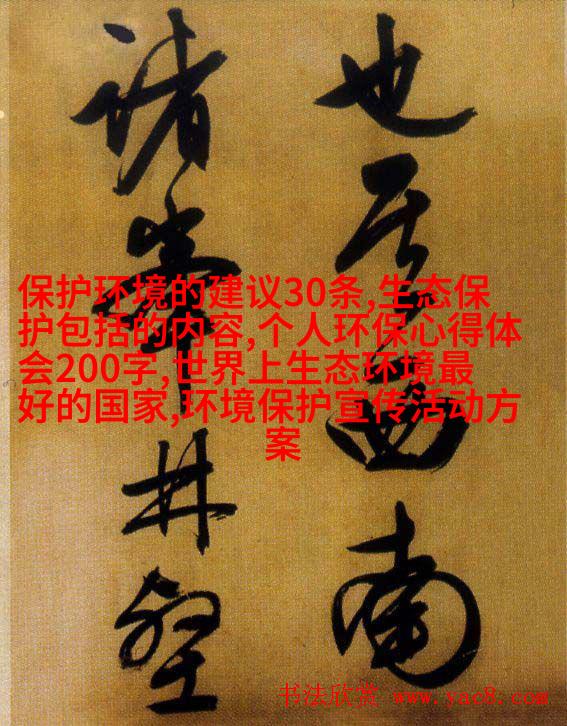 也其西南
諸峯林壑
保护环境的建议30条,生态保
护包括的内容,个人环保心得体
会200字,世界上生态环境最
好的国家,环境保护宣传活动方
案
书法欣赏 www.yac8.com